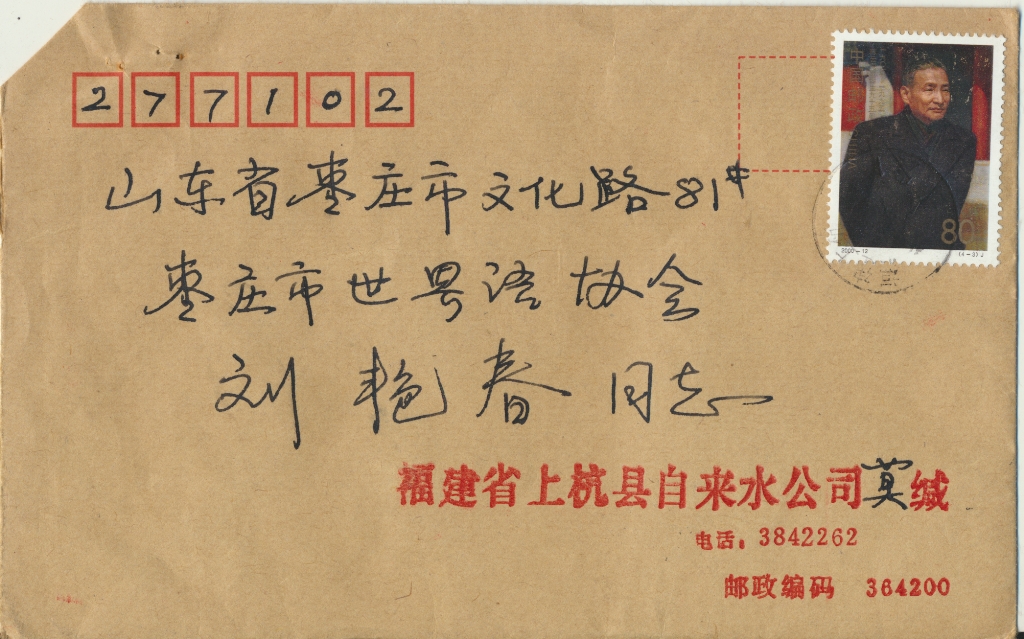 277102
山东省枣庄市文化路81#
枣庄市世界语协会
刘艳春同志
福建省上杭县自来水公司莫缄
电话：3842262
邮政编码 364200
80
2002-12
(4-3)J